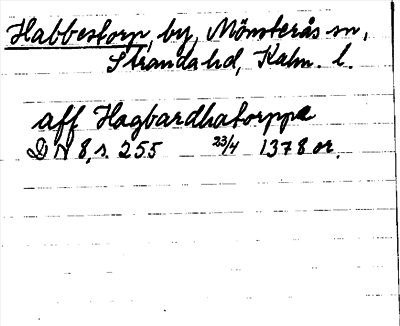 Habbestorp, by, Mönsterås sn,
Stranda hd, Kalm. l.
aff Hagbardhatorppe
DN 8, s. 255 23/4 1378 or.